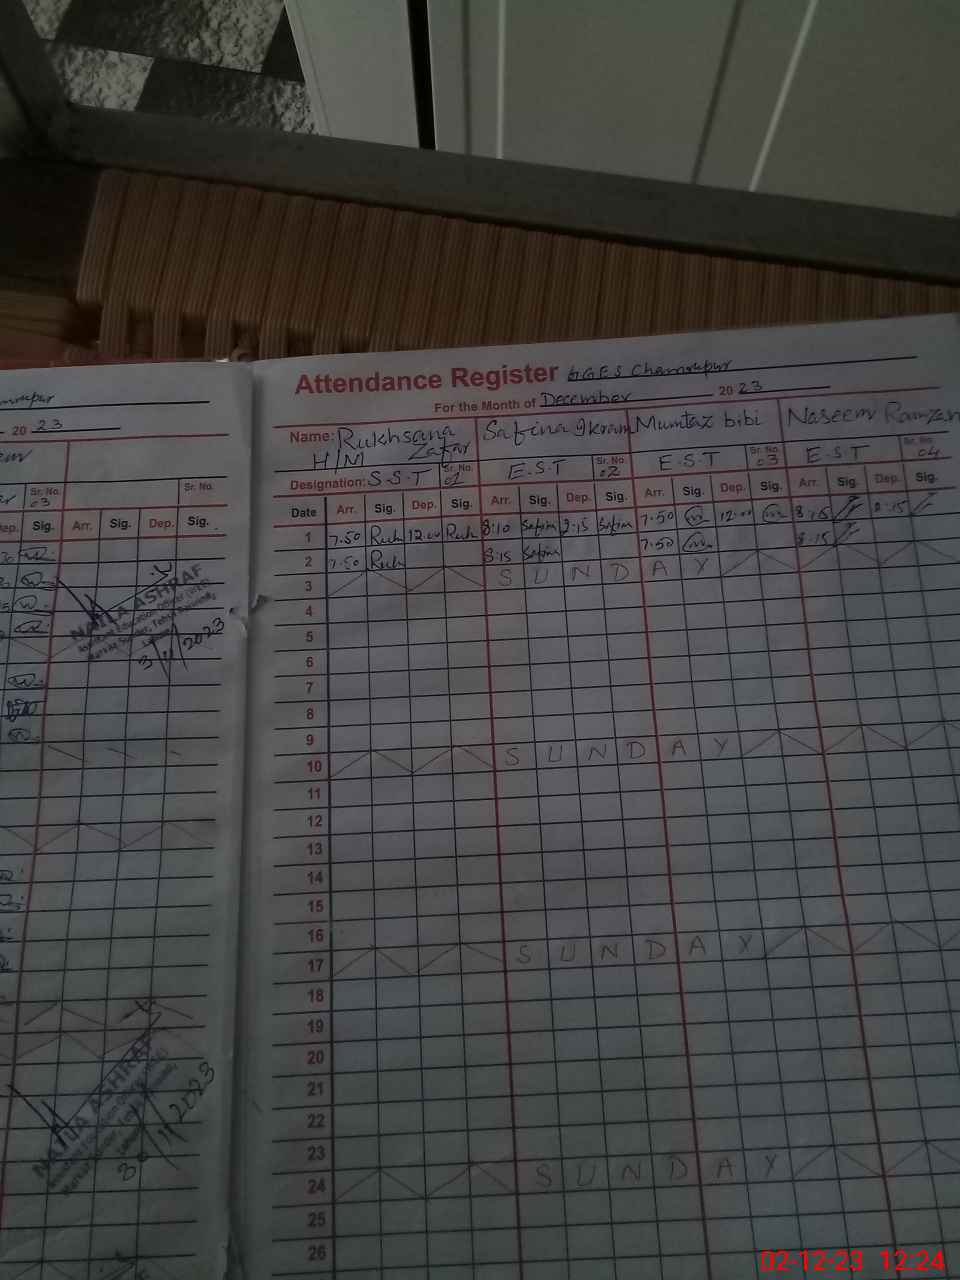 20 23
Sr. No.
03
Sr. No.
Dep. Sig. Arr. Sig. Dep. Sig.
NAILA ASHRAF
Assistant Education Officer
3/11/2023
NAILA ASHRAF
2023
Attendance Register GGES Chamrupur
For the Month of December 2023
Name: Rukhsana Zafar Safina Ikram Mumtaz bibi Naseem Ramzan
H/M
Designation: S.S.T Sr. No. 01 E.S.T Sr. No. 02 E.S.T Sr. No. 03 E.S.T Sr. No. 04
Date Arr. Sig. Dep. Sig. Arr. Sig. Dep. Sig. Arr. Sig. Dep. Sig. Arr. Sig. Dep. Sig.
1 7.50 Ruk 12.00 Ruk 8:10 Safina 2:15 Safina 7.50 12.00 8.15 2.15
2 7.50 Ruk 8:15 Safina 7.50 8.15
3 SUNDAY
4
5
6
7
8
9
10 SUNDAY
11
12
13
14
15
16
17 SUNDAY
18
19
20
21
22
23
24 SUNDAY
25
26
02-12-23 12:24